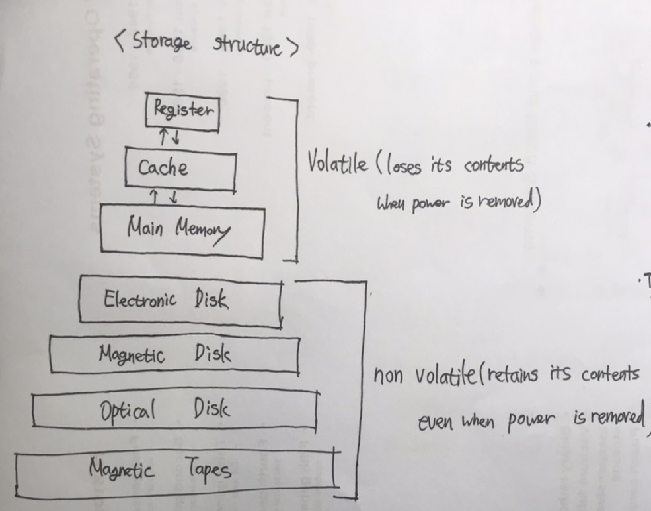 < Storage structure >
Register
Cache
Main Memory
Volatile (loses its contents
when power is removed)
Electronic Disk
Magnetic Disk
Optical Disk
Magnetic Tapes
non volatile (retains its contents
even when power is removed)